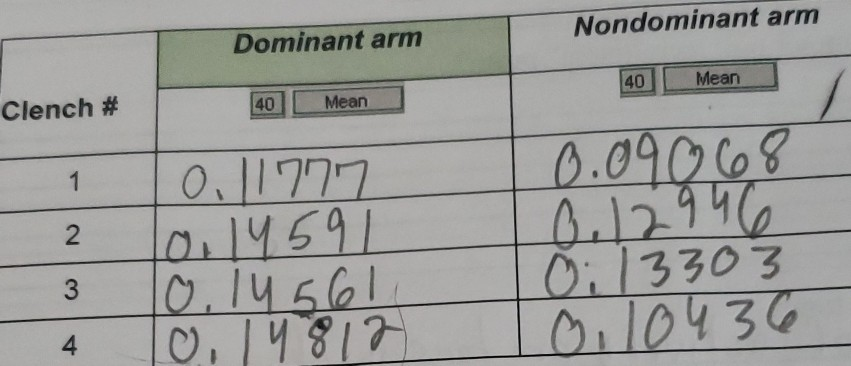 Dominant arm Nondominant arm
Clench # 40 Mean 40 Mean
1 0.11777 0.09068
2 0.14591 0.12946
3 0.14561 0.13303
4 0.14812 0.10436